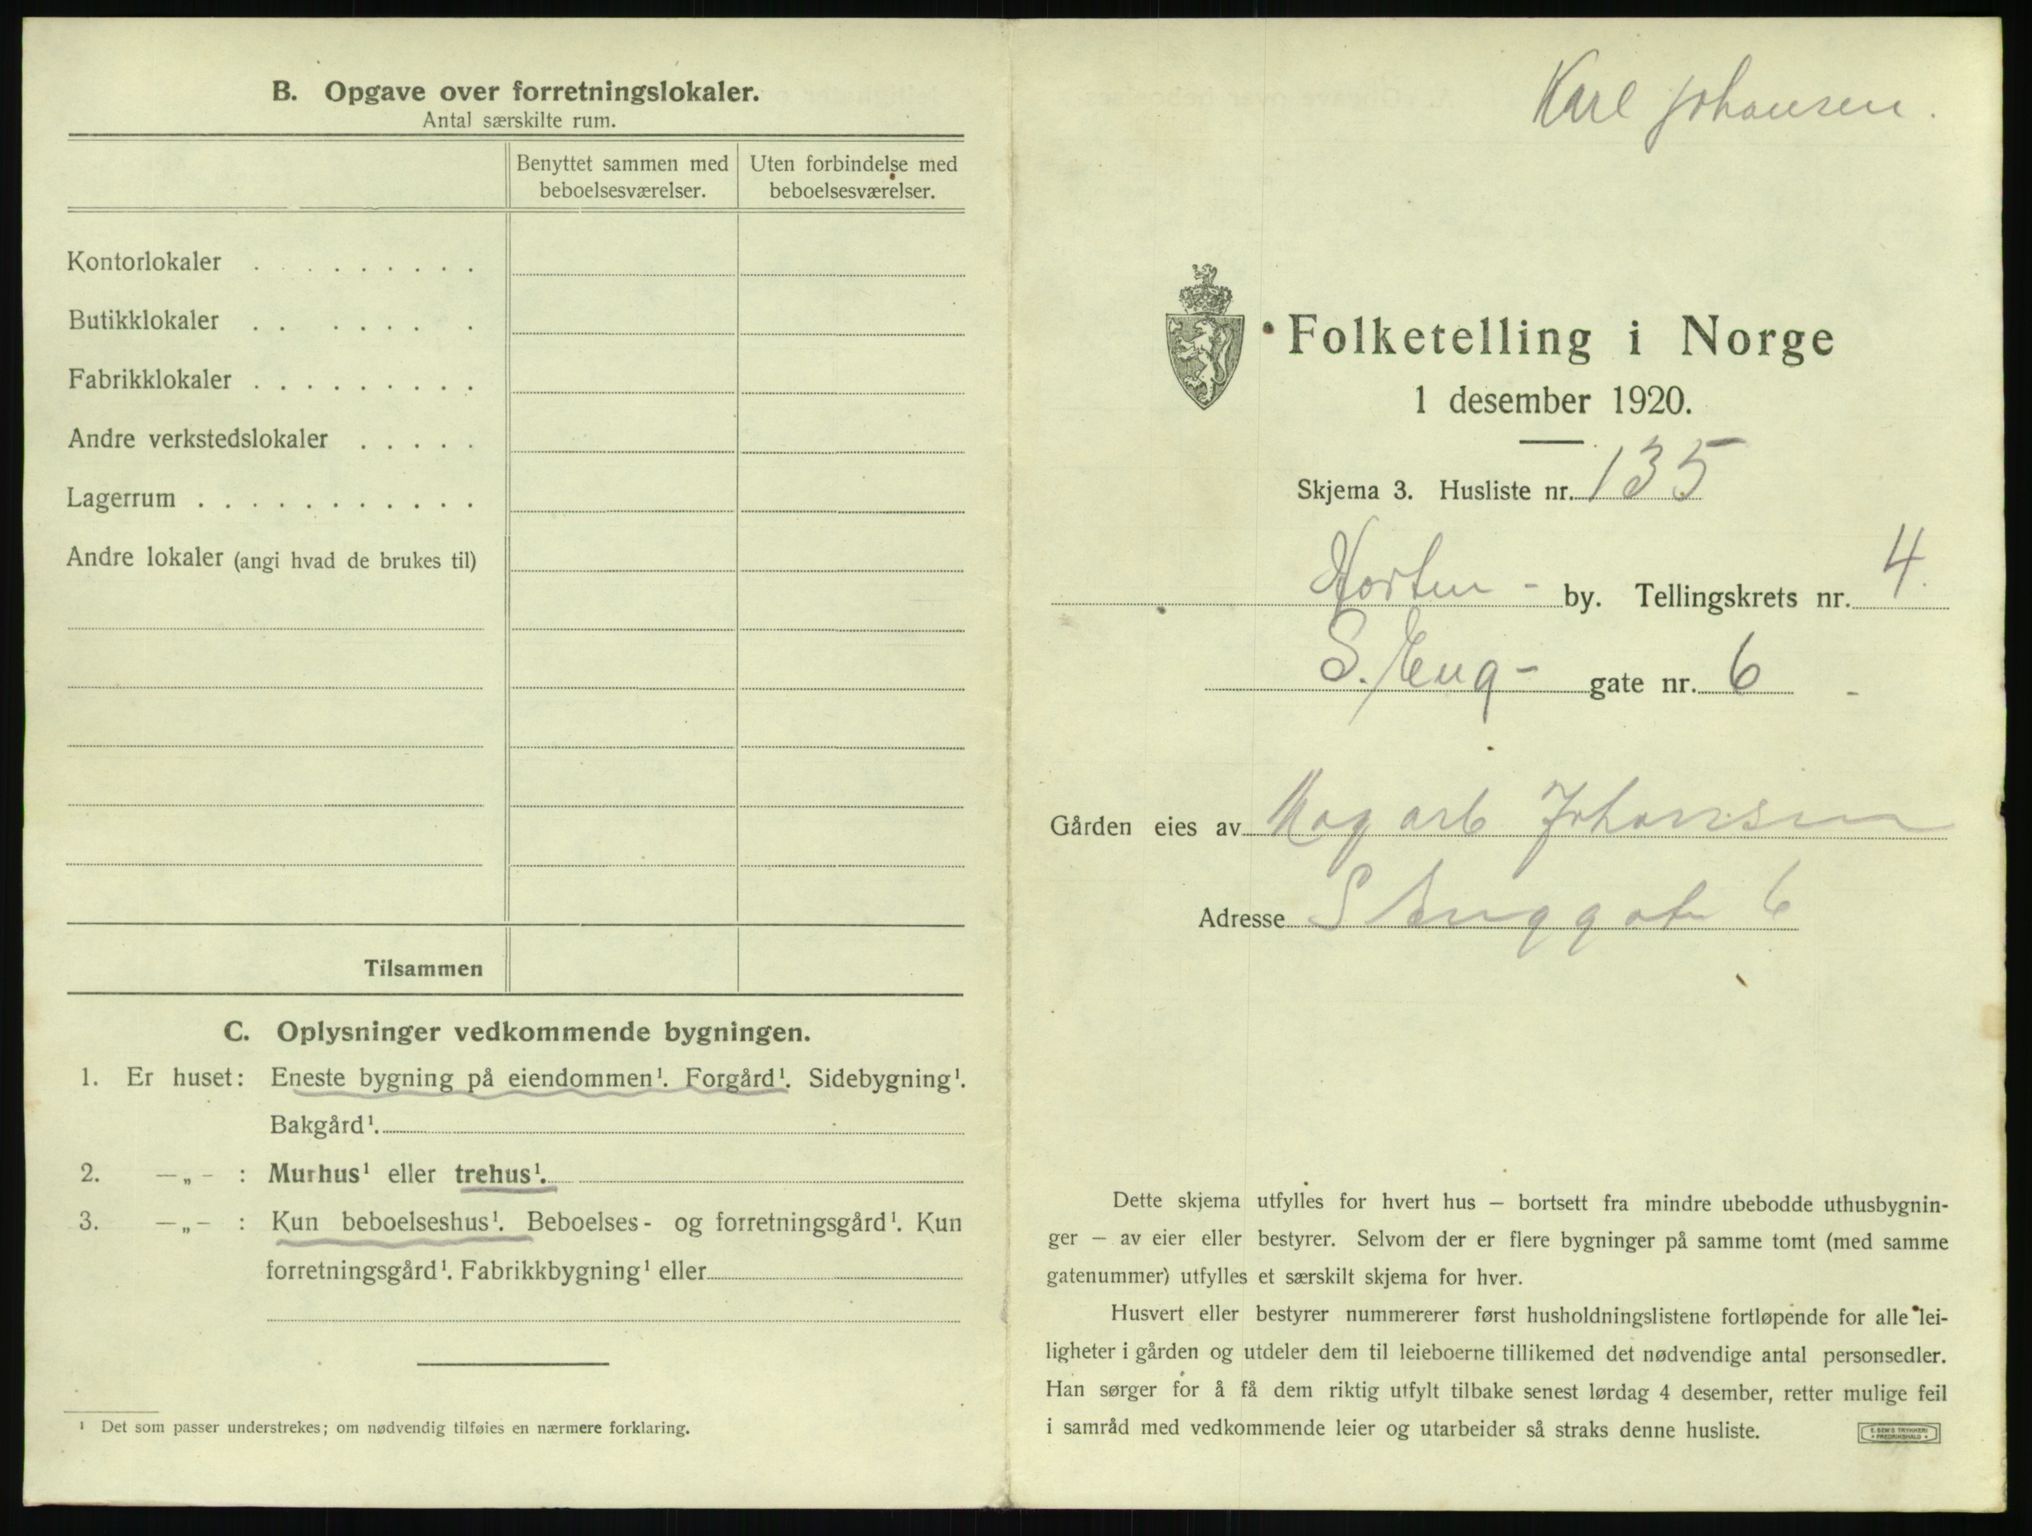 B. Opgave over forretningslokaler.
Antal særskilte rum.
Benyttet sammen med beboelsesværelser.
Uten forbindelse med beboelsesværelser.
Kontorlokaler . . . . . . . . .
Butikklokaler . . . . . . .
Fabrikklokaler . . . . . . . . .
Andre verkstedslokaler . . . . .
Lagerrum . . . . . . . . . . .
Andre lokaler (angi hvad de brukes til)
Tilsammen
C. Oplysninger vedkommende bygningen.
1. Er huset: Eneste bygning på eiendommen¹. Forgård¹. Sidebygning¹.
Bakgård¹.
2. —„— : Murhus¹ eller trehus¹.
3. —„— : Kun beboelseshus¹. Beboelses- og forretningsgård¹. Kun
forretningsgård¹. Fabrikkbygning¹ eller
¹ Det som passer understrekes; om nødvendig tilføies en nærmere forklaring.
Karl Johansen.
Folketelling i Norge
1 desember 1920.
Skjema 3. Husliste nr. 135
Horten - by. Tellingskrets nr. 4.
S. Eng- gate nr. 6
Gården eies av Johansen
Adresse S Enggate 6
Dette skjema utfylles for hvert hus — bortsett fra mindre ubebodde uthusbygnin-
ger — av eier eller bestyrer. Selvom der er flere bygninger på samme tomt (med samme
gatenummer) utfylles et særskilt skjema for hver.
Husvert eller bestyrer nummererer først husholdningslistene fortløpende for alle lei-
ligheter i gården og utdeler dem til leieboerne tillikemed det nødvendige antal personsedler.
Han sørger for å få dem riktig utfylt tilbake senest lørdag 4 desember, retter mulige feil
i samråd med vedkommende leier og utarbeider så straks denne husliste.
E. SEM'S TRYKKERI
FREDRIKSHALD